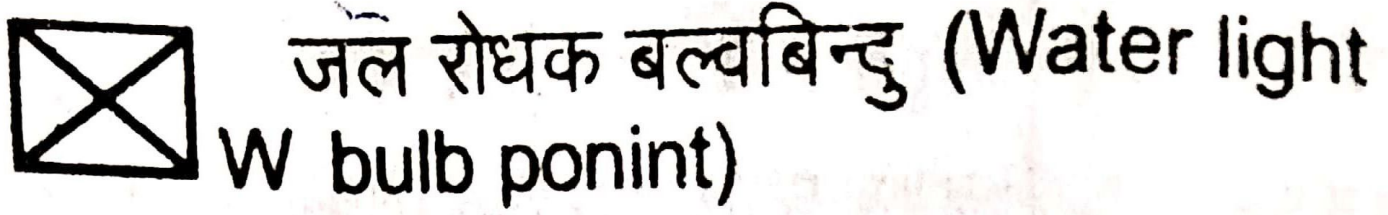 जल रोधक बल्वबिन्दु (Water light
W bulb ponint)